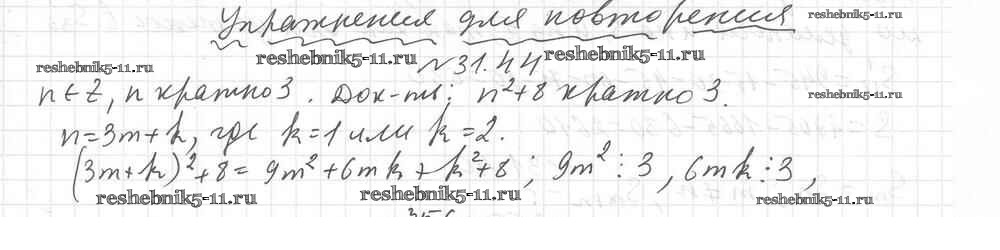 Упражнения для повторения
reshebnik5-11.ru
reshebnik5-11.ru reshebnik5-11.ru
reshebnik5-11.ru
№31.44
n∈Z, n кратно 3. Док-ть: n²+8 кратно 3.
reshebnik5-11.ru
n=3m+k, где k=1 или k=2.
(3m+k)²+8=9m²+6mk+k²+8; 9m²⋮3, 6mk⋮3,
reshebnik5-11.ru reshebnik5-11.ru reshebnik5-11.ru